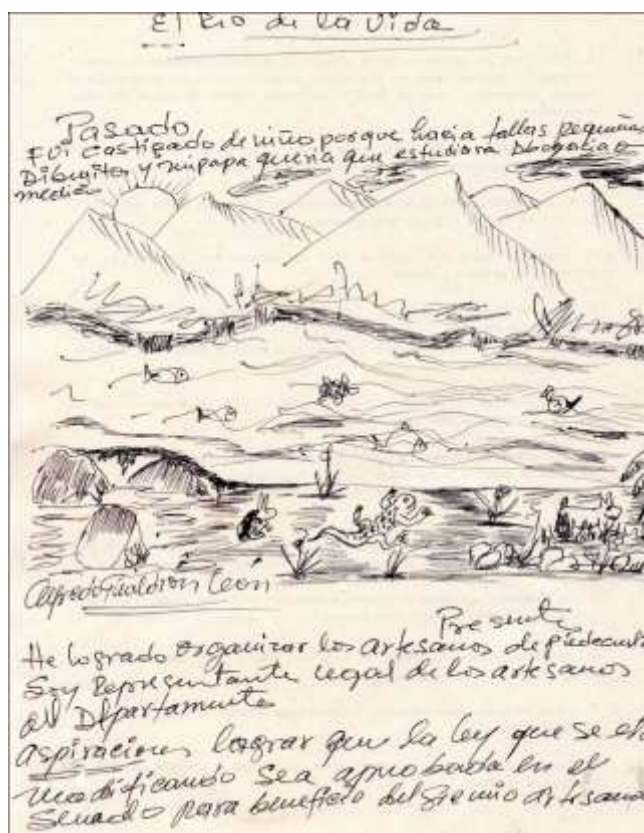 El Rio de la Vida
Pasado
Fui castigado de niño porque hacia tallas pequeñas
Dibujitos y mi papa queria que estudiara Abogacia o
medicina
Alfredo León
Presente
He logrado organizar los artesanos de piedecuesta
Soy Representante legal de los artesanos
del Departamento
aspiraciones lograr que la ley que se está
modificando sea aprobada en el
Senado para beneficio del gremio artesanal